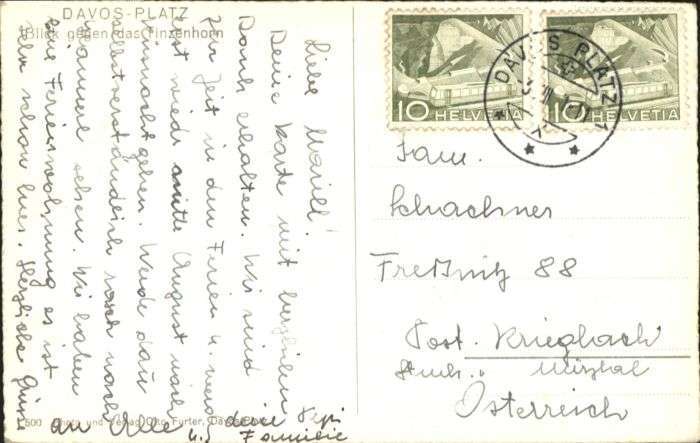 DAVOS-PLATZ
Blick gegen das Tinzenhorn
Liebe
Deine Karte mit herzlichem
Dank erhalten. Wir sind
zur Zeit in den Ferien u. werde
erst wieder mitte August nach
gehen. Werde dann
selbstverständlich rasch nach
sehen. Wir haben
eine Ferienwohnung es ist
sehr schön hier. Herzliche Grüsse
an Alle deine Sepi
u. Familie
500 Photo und Verlag Otto Furter, Davos-Platz
10 HELVETIA
10 HELVETIA
DAVOS PLATZ 1
Fam.
Schachner
Freßnitz 88
Post. Krieglach
Mürztal
Österreich